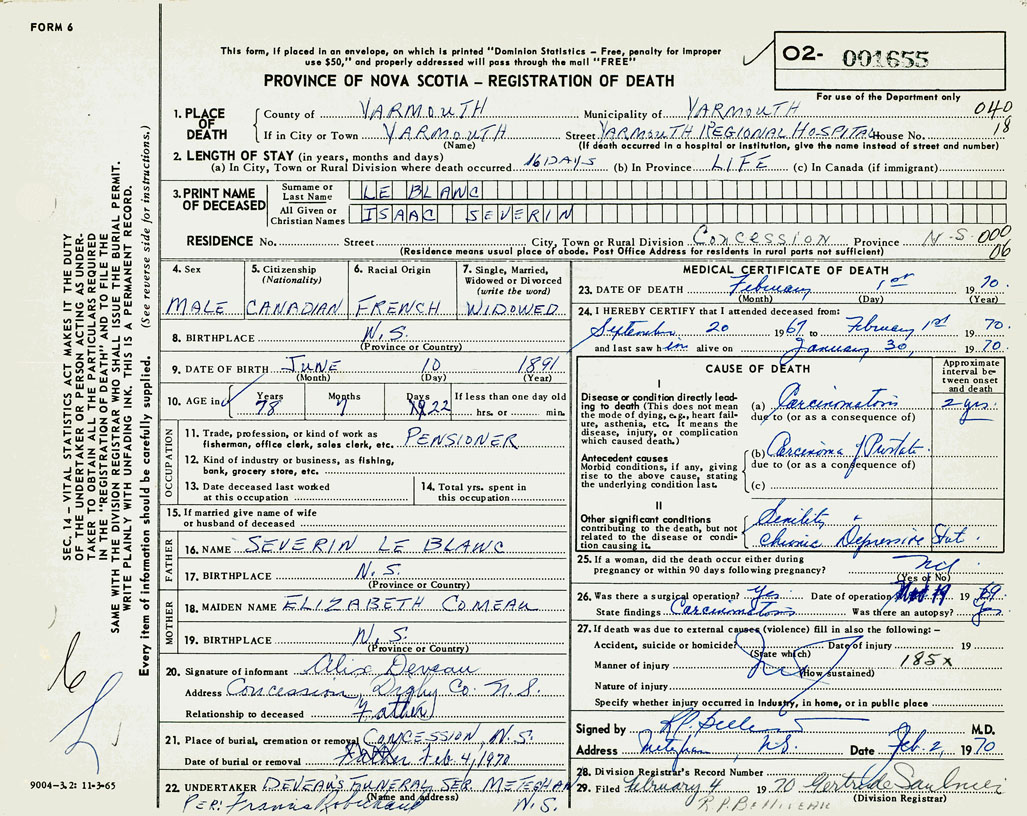 FORM 6
This form, if placed in an envelope, on which is printed "Dominion Statistics – Free, penalty for improper
use $50," and properly addressed will pass through the mail "FREE"
O2- 001655
For use of the Department only
PROVINCE OF NOVA SCOTIA – REGISTRATION OF DEATH
1. PLACE OF DEATH
County of YARMOUTH Municipality of YARMOUTH 040
If in City or Town YARMOUTH (Name) Street YARMOUTH REGIONAL HOSPITAL House No. 18
(If death occurred in a hospital or institution, give the name instead of street and number)
2. LENGTH OF STAY (in years, months and days)
(a) In City, Town or Rural Division where death occurred 16 DAYS (b) In Province LIFE (c) In Canada (if immigrant)
3. PRINT NAME OF DECEASED
Surname or Last Name LE BLANC
All Given or Christian Names ISAAC SEVERIN
RESIDENCE No. Street City, Town or Rural Division CONCESSION Province N.S. 000
(Residence means usual place of abode. Post Office Address for residents in rural parts not sufficient) 06
4. Sex MALE
5. Citizenship (Nationality) CANADIAN
6. Racial Origin FRENCH
7. Single, Married, Widowed or Divorced (write the word) WIDOWED
8. BIRTHPLACE N.S.
(Province or Country)
9. DATE OF BIRTH JUNE 10 1891
(Month) (Day) (Year)
10. AGE in Years Months Days If less than one day old
78 7 22 hrs. or min.
OCCUPATION
11. Trade, profession, or kind of work as PENSIONER
fisherman, office clerk, sales clerk, etc.
12. Kind of industry or business, as fishing,
bank, grocery store, etc.
13. Date deceased last worked
at this occupation
14. Total yrs. spent in
this occupation
15. If married give name of wife
or husband of deceased
FATHER
16. NAME SEVERIN LE BLANC
17. BIRTHPLACE N.S.
(Province or Country)
MOTHER
18. MAIDEN NAME ELIZABETH COMEAU
19. BIRTHPLACE N.S.
(Province or Country)
20. Signature of informant Alix Deveau
Address Concession, Digby Co. N.S.
Relationship to deceased Father
21. Place of burial, cremation or removal CONCESSION, N.S.
Date of burial or removal Feb. 4, 1970
22. UNDERTAKER DEVEAU'S FUNERAL SER. METEGHAN
(Name and address) N.S.
PER: Francis Robichaud
MEDICAL CERTIFICATE OF DEATH
23. DATE OF DEATH February 1st 1970
(Month) (Day) (Year)
24. I HEREBY CERTIFY that I attended deceased from:
September 20 1967 to February 1st 1970
and last saw him alive on January 30, 1970
CAUSE OF DEATH
Approximate interval between onset and death
I
Disease or condition directly leading
to death (This does not mean
the mode of dying, e.g., heart failure,
asthenia, etc. It means the
disease, injury, or complication
which caused death.)
(a) Carcinomatosis 2 yrs.
due to (or as a consequence of)
Antecedent causes
Morbid conditions, if any, giving
rise to the above cause, stating
the underlying condition last.
(b) Carcinoma of Prostate
due to (or as a consequence of)
(c)
II
Other significant conditions
contributing to the death, but not
related to the disease or condition
causing it.
Senility +
Chronic Depressive State
25. If a woman, did the death occur either during
pregnancy or within 90 days following pregnancy?
(Yes or No)
26. Was there a surgical operation? Yes Date of operation 19 1969
State findings Carcinomatosis Was there an autopsy? Yes
27. If death was due to external causes (violence) fill in also the following: –
Accident, suicide or homicide? Date of injury 19
(State which)
Manner of injury 185X
(How sustained)
Nature of injury
Specify whether injury occurred in industry, in home, or in public place
Signed by M.D.
Address Meteghan N.S. Date Feb. 2, 1970
28. Division Registrar's Record Number
29. Filed February 4 1970 Gertrude Saulnier
(Division Registrar)
SEC. 14 – VITAL STATISTICS ACT MAKES IT THE DUTY
OF THE UNDERTAKER OR PERSON ACTING AS UNDER-
TAKER TO OBTAIN ALL THE PARTICULARS REQUIRED
IN THE "REGISTRATION OF DEATH" AND TO FILE THE
SAME WITH THE DIVISION REGISTRAR WHO SHALL ISSUE THE BURIAL PERMIT.
WRITE PLAINLY WITH UNFADING INK. THIS IS A PERMANENT RECORD.
Every item of information should be carefully supplied. (See reverse side for instructions.)
9004-3.2: 11-3-65